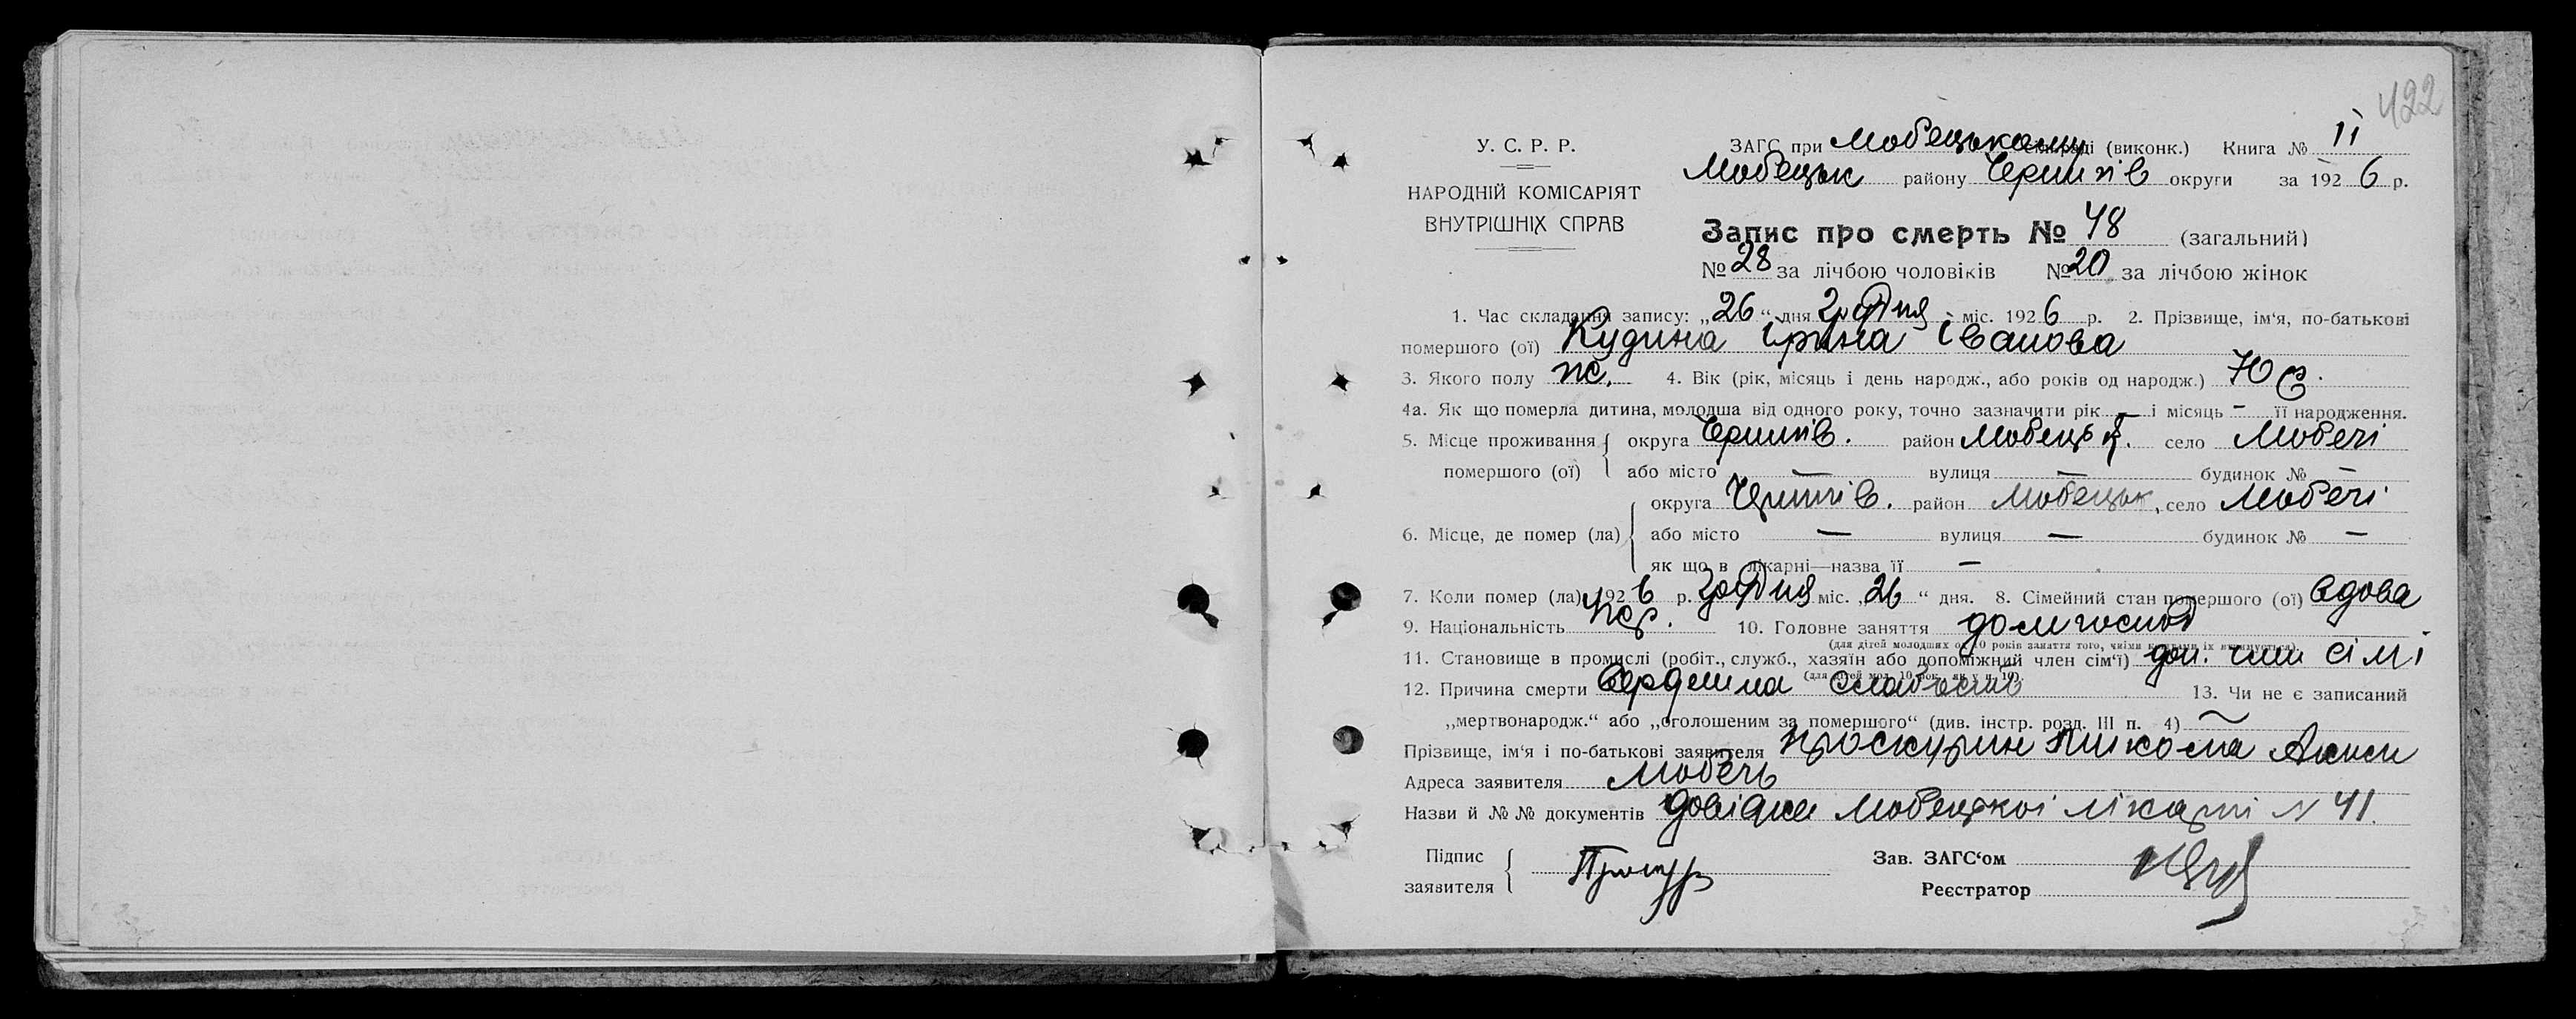 422
У. С. Р. Р.
НАРОДНІЙ КОМІСАРІЯТ
ВНУТРІШНІХ СПРАВ
ЗАГС при Любецькому сельраді (виконк.) Книга № II
Любецьк району Черниг̇ів округи за 1926 р.
Запис про смерть № 48 (загальний)
№ 28 за лічбою чоловіків № 20 за лічбою жінок
1. Час складання запису: „26“ дня Грудня міс. 1926 р. 2. Прізвище, ім‘я, по-батькові
помершого (ої) Кудина Ірина Іванова
3. Якого полу ж. 4. Вік (рік, місяць і день народж., або років од народж.) 70 р.
4а. Як що померла дитина, молодша від одного року, точно зазначити рік — і місяць — її народження.
5. Місце проживання округа Черниг̇ів. район Любецьк. село Любечі
помершого (ої) або місто — вулиця — будинок № —
округа Черниг̇ів. район Любецьк, село Любечі
6. Місце, де помер (ла) або місто — вулиця — будинок № —
як що в лікарні—назва її —
7. Коли помер (ла) 1926 р. Грудня міс. „26“ дня. 8. Сімейний стан помершого (ої) вдова
9. Національність укр. 10. Головне заняття дом господ
(для дітей молодших од 10 років заняття того, чиїми коштами їх утримується).
11. Становище в промислі (робіт., служб., хазяїн або допоміжний член сім‘ї) доп. член сімї
(для дітей мол. 10 рок., як у п. 10)
12. Причина смерти Сердешна слабость 13. Чи не є записаний
„мертвонародж.“ або „оголошеним за помершого“ (див. інстр. розд. III п. 4) —
Прізвище, ім‘я і по-батькові заявителя Проскурин Микола
Адреса заявителя Любечь
Назви й №№ документів довідка Любецької лікарні N 41.
Підпис
заявителя
Зав. ЗАГС‘ом
Реєстратор